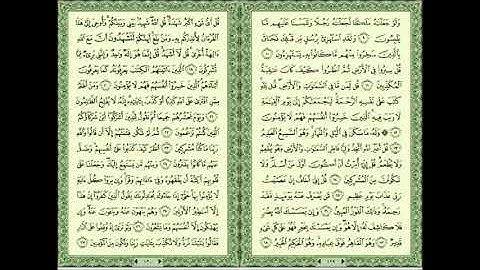 وَلَوْ جَعَلْنَٰهُ مَلَكًا لَّجَعَلْنَٰهُ رَجُلًا وَلَلَبَسْنَا عَلَيْهِم مَّا
يَلْبِسُونَ ٩ وَلَقَدِ ٱسْتُهْزِئَ بِرُسُلٍ مِّن قَبْلِكَ فَحَاقَ
بِٱلَّذِينَ سَخِرُوا۟ مِنْهُم مَّا كَانُوا۟ بِهِۦ يَسْتَهْزِءُونَ ١٠
قُلْ سِيرُوا۟ فِى ٱلْأَرْضِ ثُمَّ ٱنظُرُوا۟ كَيْفَ كَانَ عَٰقِبَةُ
ٱلْمُكَذِّبِينَ ١١ قُل لِّمَن مَّا فِى ٱلسَّمَٰوَٰتِ وَٱلْأَرْضِ قُل لِّلَّهِ
كَتَبَ عَلَىٰ نَفْسِهِ ٱلرَّحْمَةَ لَيَجْمَعَنَّكُمْ إِلَىٰ يَوْمِ ٱلْقِيَٰمَةِ
لَا رَيْبَ فِيهِ ٱلَّذِينَ خَسِرُوٓا۟ أَنفُسَهُمْ فَهُمْ لَا يُؤْمِنُونَ
١٢ وَلَهُۥ مَا سَكَنَ فِى ٱلَّيْلِ وَٱلنَّهَارِ وَهُوَ ٱلسَّمِيعُ ٱلْعَلِيمُ
١٣ قُلْ أَغَيْرَ ٱللَّهِ أَتَّخِذُ وَلِيًّا فَاطِرِ ٱلسَّمَٰوَٰتِ وَٱلْأَرْضِ وَهُوَ يُطْعِمُ
وَلَا يُطْعَمُ قُلْ إِنِّىٓ أُمِرْتُ أَنْ أَكُونَ أَوَّلَ مَنْ أَسْلَمَ وَلَا
تَكُونَنَّ مِنَ ٱلْمُشْرِكِينَ ١٤ قُلْ إِنِّىٓ أَخَافُ إِنْ عَصَيْتُ
رَبِّى عَذَابَ يَوْمٍ عَظِيمٍ ١٥ مَّن يُصْرَفْ عَنْهُ يَوْمَئِذٍ فَقَدْ
رَحِمَهُۥ وَذَٰلِكَ ٱلْفَوْزُ ٱلْمُبِينُ ١٦ وَإِن يَمْسَسْكَ ٱللَّهُ بِضُرٍّ
فَلَا كَاشِفَ لَهُۥٓ إِلَّا هُوَ وَإِن يَمْسَسْكَ بِخَيْرٍ فَهُوَ عَلَىٰ كُلِّ شَىْءٍ
قَدِيرٌ ١٧ وَهُوَ ٱلْقَاهِرُ فَوْقَ عِبَادِهِۦ وَهُوَ ٱلْحَكِيمُ ٱلْخَبِيرُ ١٨
١٢٩
قُلْ أَىُّ شَىْءٍ أَكْبَرُ شَهَٰدَةً قُلِ ٱللَّهُ شَهِيدٌۢ بَيْنِى وَبَيْنَكُمْ وَأُوحِىَ إِلَىَّ هَٰذَا
ٱلْقُرْءَانُ لِأُنذِرَكُم بِهِۦ وَمَنۢ بَلَغَ أَئِنَّكُمْ لَتَشْهَدُونَ أَنَّ مَعَ ٱللَّهِ
ءَالِهَةً أُخْرَىٰ قُل لَّآ أَشْهَدُ قُلْ إِنَّمَا هُوَ إِلَٰهٌ وَٰحِدٌ وَإِنَّنِى بَرِىٓءٌ مِّمَّا
تُشْرِكُونَ ١٩ ٱلَّذِينَ ءَاتَيْنَٰهُمُ ٱلْكِتَٰبَ يَعْرِفُونَهُۥ كَمَا يَعْرِفُونَ
أَبْنَآءَهُمُ ٱلَّذِينَ خَسِرُوٓا۟ أَنفُسَهُمْ فَهُمْ لَا يُؤْمِنُونَ ٢٠ وَمَنْ
أَظْلَمُ مِمَّنِ ٱفْتَرَىٰ عَلَى ٱللَّهِ كَذِبًا أَوْ كَذَّبَ بِـَٔايَٰتِهِۦٓ إِنَّهُۥ لَا يُفْلِحُ ٱلظَّٰلِمُونَ
٢١ وَيَوْمَ نَحْشُرُهُمْ جَمِيعًا ثُمَّ نَقُولُ لِلَّذِينَ أَشْرَكُوٓا۟ أَيْنَ شُرَكَآؤُكُمُ
ٱلَّذِينَ كُنتُمْ تَزْعُمُونَ ٢٢ ثُمَّ لَمْ تَكُن فِتْنَتُهُمْ إِلَّآ أَن قَالُوا۟ وَٱللَّهِ
رَبِّنَا مَا كُنَّا مُشْرِكِينَ ٢٣ ٱنظُرْ كَيْفَ كَذَبُوا۟ عَلَىٰٓ أَنفُسِهِمْ وَضَلَّ
عَنْهُم مَّا كَانُوا۟ يَفْتَرُونَ ٢٤ وَمِنْهُم مَّن يَسْتَمِعُ إِلَيْكَ وَجَعَلْنَا عَلَىٰ
قُلُوبِهِمْ أَكِنَّةً أَن يَفْقَهُوهُ وَفِىٓ ءَاذَانِهِمْ وَقْرًا وَإِن يَرَوْا۟ كُلَّ ءَايَةٍ
لَّا يُؤْمِنُوا۟ بِهَا حَتَّىٰٓ إِذَا جَآءُوكَ يُجَٰدِلُونَكَ يَقُولُ ٱلَّذِينَ كَفَرُوٓا۟ إِنْ هَٰذَآ
إِلَّآ أَسَٰطِيرُ ٱلْأَوَّلِينَ ٢٥ وَهُمْ يَنْهَوْنَ عَنْهُ وَيَنْـَٔوْنَ عَنْهُ وَإِن
يُهْلِكُونَ إِلَّآ أَنفُسَهُمْ وَمَا يَشْعُرُونَ ٢٦ وَلَوْ تَرَىٰٓ إِذْ وُقِفُوا۟ عَلَى ٱلنَّارِ
فَقَالُوا۟ يَٰلَيْتَنَا نُرَدُّ وَلَا نُكَذِّبَ بِـَٔايَٰتِ رَبِّنَا وَنَكُونَ مِنَ ٱلْمُؤْمِنِينَ ٢٧
١٣٠